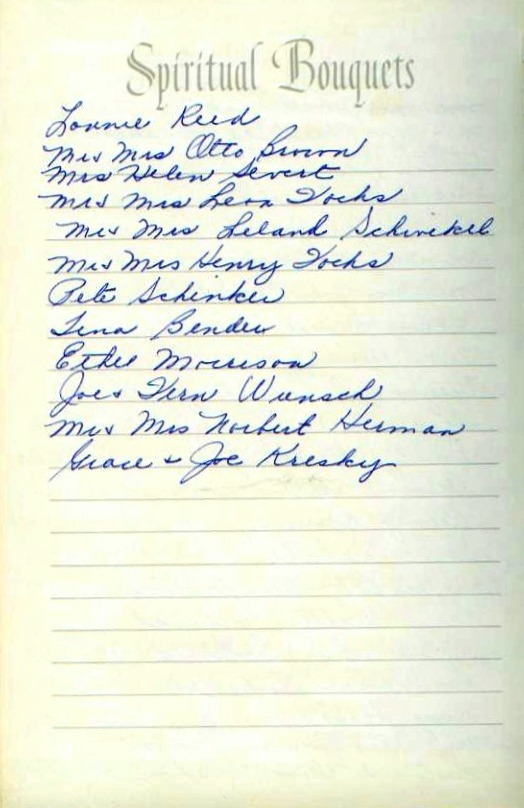 Spiritual Bouquets
Lonnie Reed
Mr & Mrs Otto Brown
Mrs Helen Severt
Mr & Mrs Leon Fochs
Mr & Mrs Leland Schinckel
Mr & Mrs Henry Fochs
Pete Schinker
Tena Bender
Ethel Morrison
Joe & Fern Wunsch
Mr & Mrs Norbert Herman
Grace & Joe Kresky